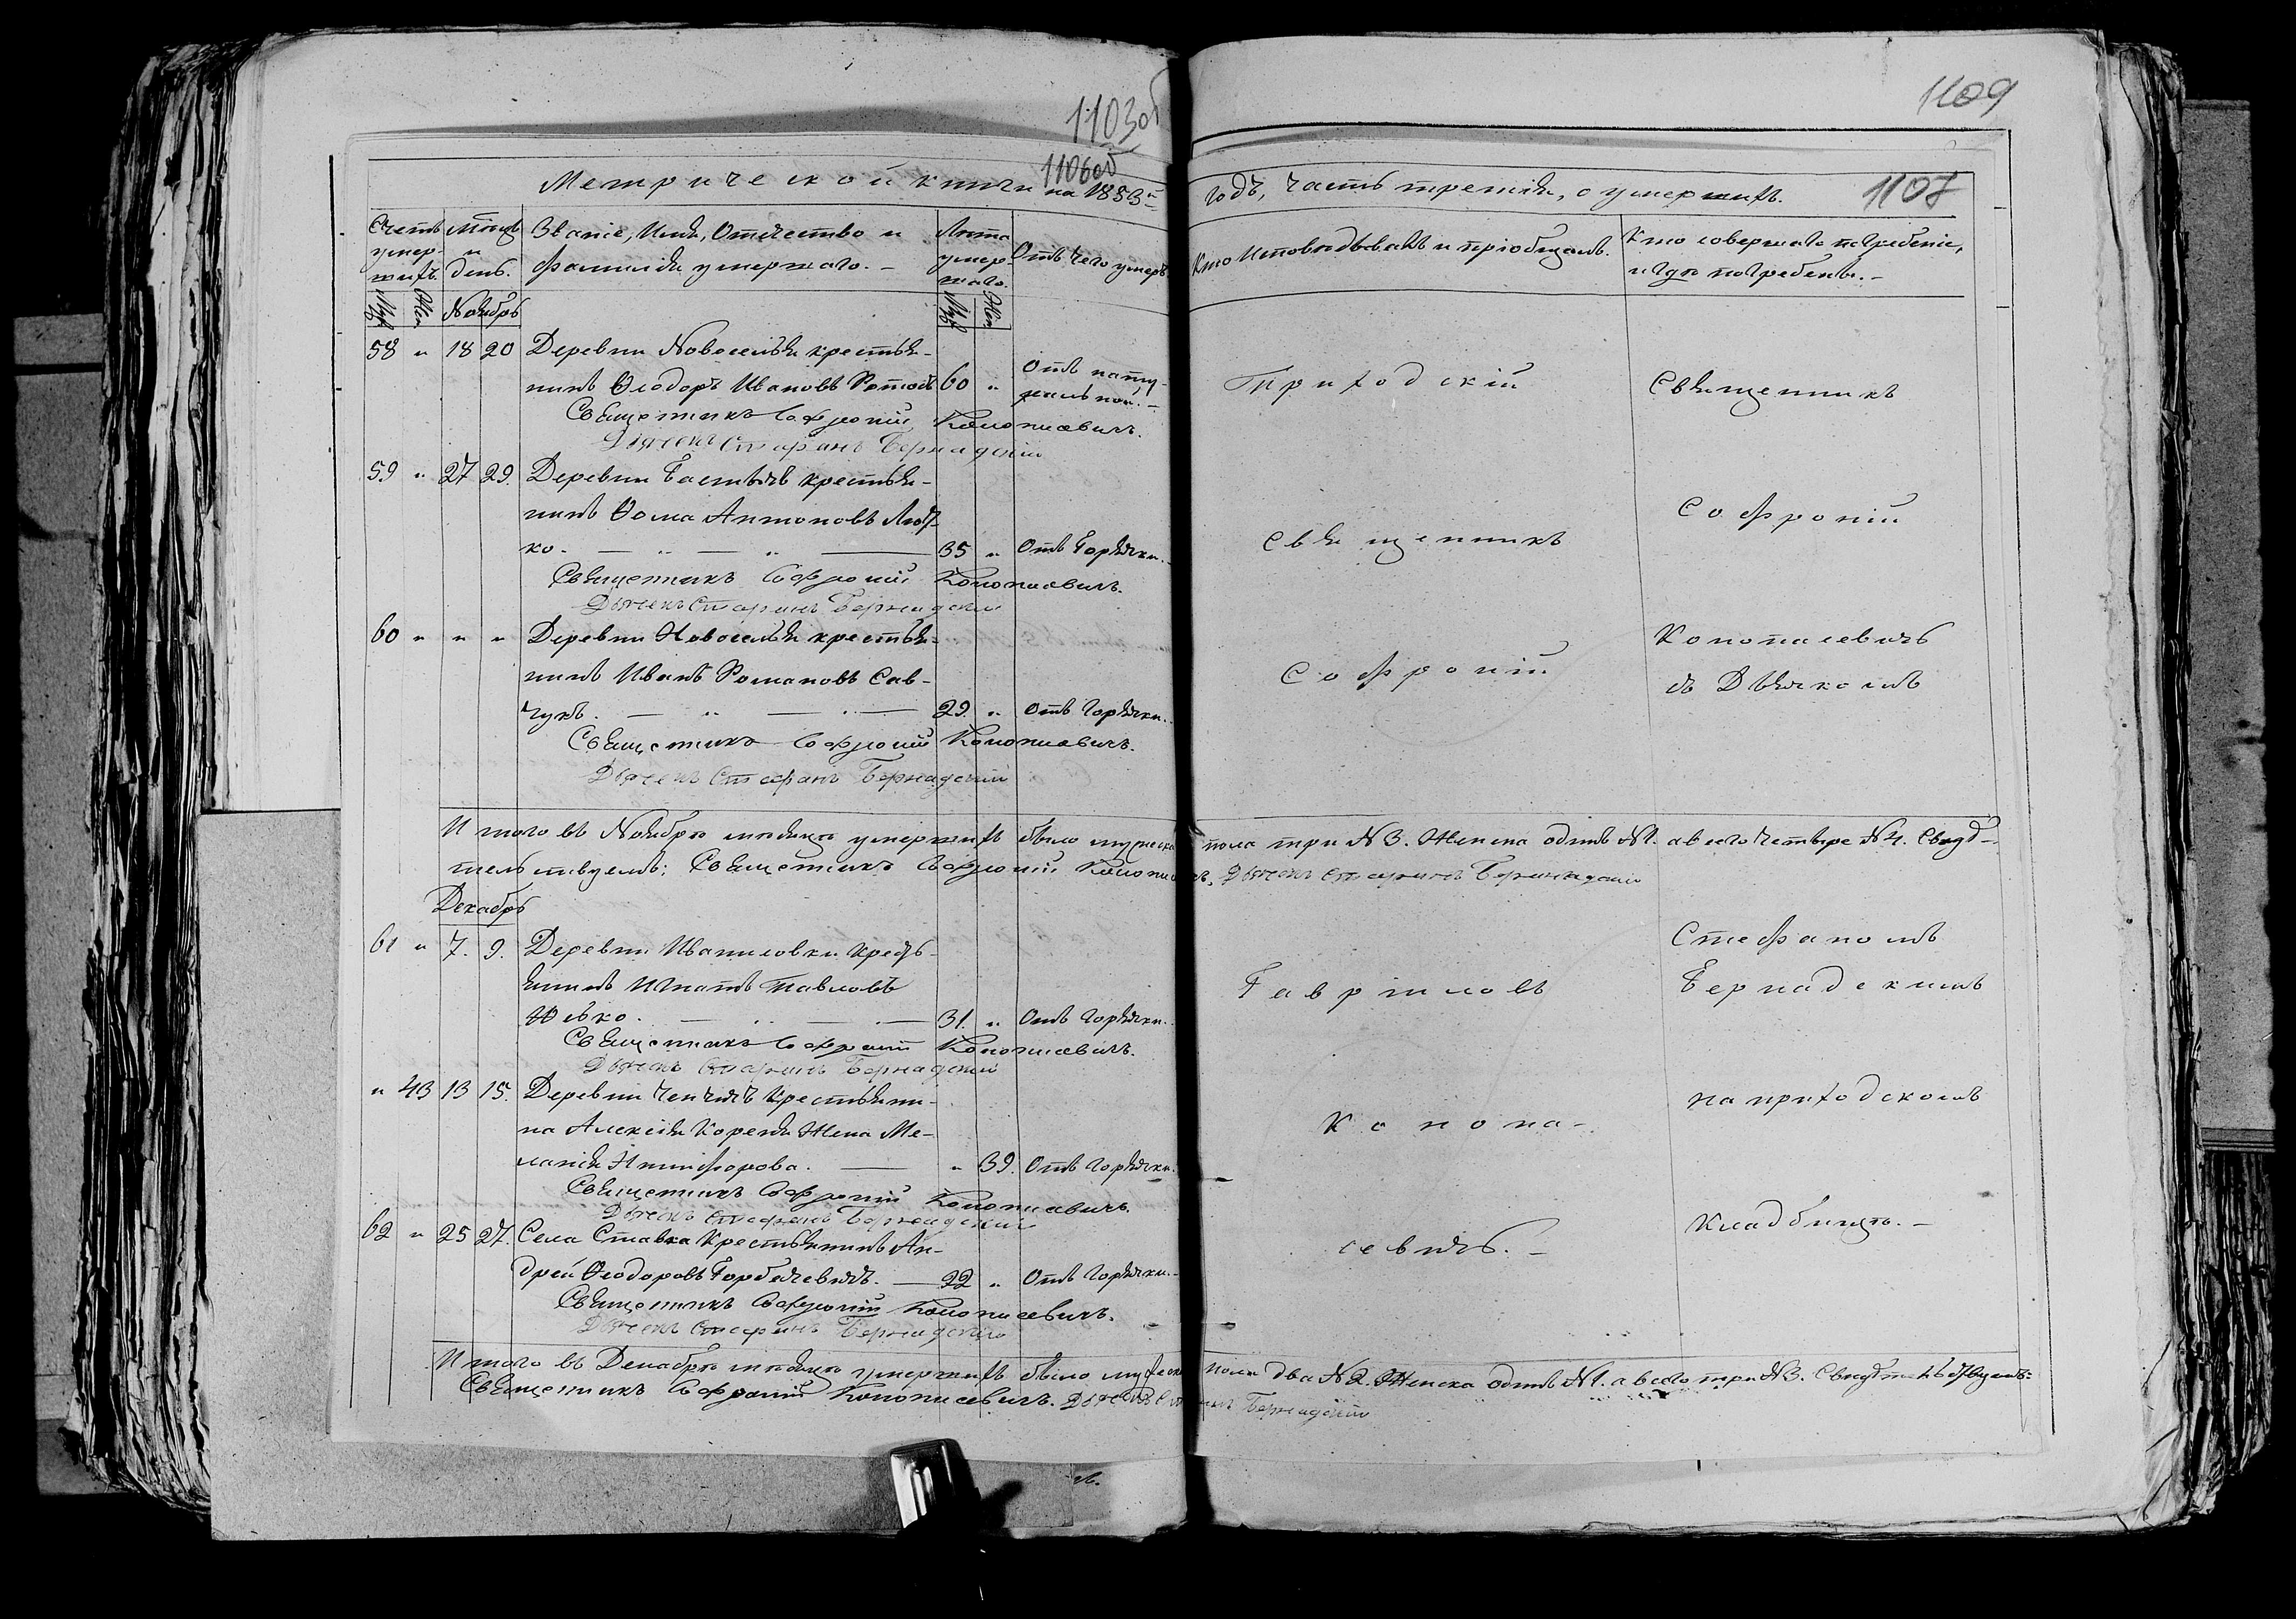 1103об
1106об
Метрической книги на 1853й
Счетъ умер-шихъ.
Мѣсяцъ и день.
Званіе, Имя, Отчество и фамилія умершаго. –
Лѣта умер-шаго.
Отъ чего умеръ
Муж. Жен.
Ноябрь
Муж. Жен.
58 „ 18 20 Деревни Новоселья крестья-
нинъ Ѳеодоръ Ивановъ 60 „ Отъ нату-
ральной. –
Священникъ Софроній Конопасевичъ.
Дьячекъ Стефанъ Бернадскій
59 „ 27 29. Деревни крестья-
нинъ Ѳома Антоновъ
ко. — „ — „ — 35 „ Отъ Горячки. –
Священникъ Софроній Конопасевичъ.
Дьячекъ Стефанъ Бернадскій
60 „ „ „ Деревни Новоселья крестья-
нинъ Иванъ Романовъ Сав-
чукъ. — „ — „ — 29. „ Отъ Горячки.
Священникъ Софроній Конопасевичъ.
Дьячекъ Стефанъ Бернадскій
Итого въ Ноябрѣ мѣсяцѣ умершихъ было мужеска
тельствуемъ: Священникъ Софроній
Декабрь
61 „ 7. 9. Деревни Ивановки Кресть-
янинъ Игнатъ Павловъ
— „ — „ — 31. „ Отъ Горячки.
Священникъ Софроній Конопасевичъ.
Дьячекъ Стефанъ Бернадскій
„ 43 13 15. Деревни Крестьяни-
на Алексія Корения Жена Ме-
ланія Никифорова. — „ 39. Отъ Горячки.
Священникъ Софроній Конопасевичъ.
Дьячекъ Стефанъ Бернадскій
62 „ 25 27. Села Ставка Крестьянинъ Ан-
дрей Ѳеодоровъ Горбачевичъ. — 22 „ Отъ Горячки. –
Священникъ Софроній Конопасевичъ.
Дьячекъ Стефанъ Бернадскій
Итого въ Декабрѣ мѣсяцѣ умершихъ было мужеска
Священникъ Софроній Конопасевичъ. Дьячекъ
1109
годъ, часть третія, о умершихъ. 1107
Кто Исповѣдывалъ и пріобщалъ.
Кто совершалъ погребеніе,
и гдѣ погребены. –
Приходскій
Священникъ
Софроній
Гавриловъ
Конопа-
севичъ. –
Священникъ
Софроній
Конопасевичъ
съ Дьячкомъ
пола три №3. Женска одинъ №1. а всего четыре №4. Свидѣ-
Дьячекъ Стефанъ Бернадскій
Стефаномъ
Бернадскимъ
на приходскомъ
Кладбищѣ. –
пола два №2. Женска одинъ №1. а всего три №3. Свидѣтельствуемъ:
Бернадскій